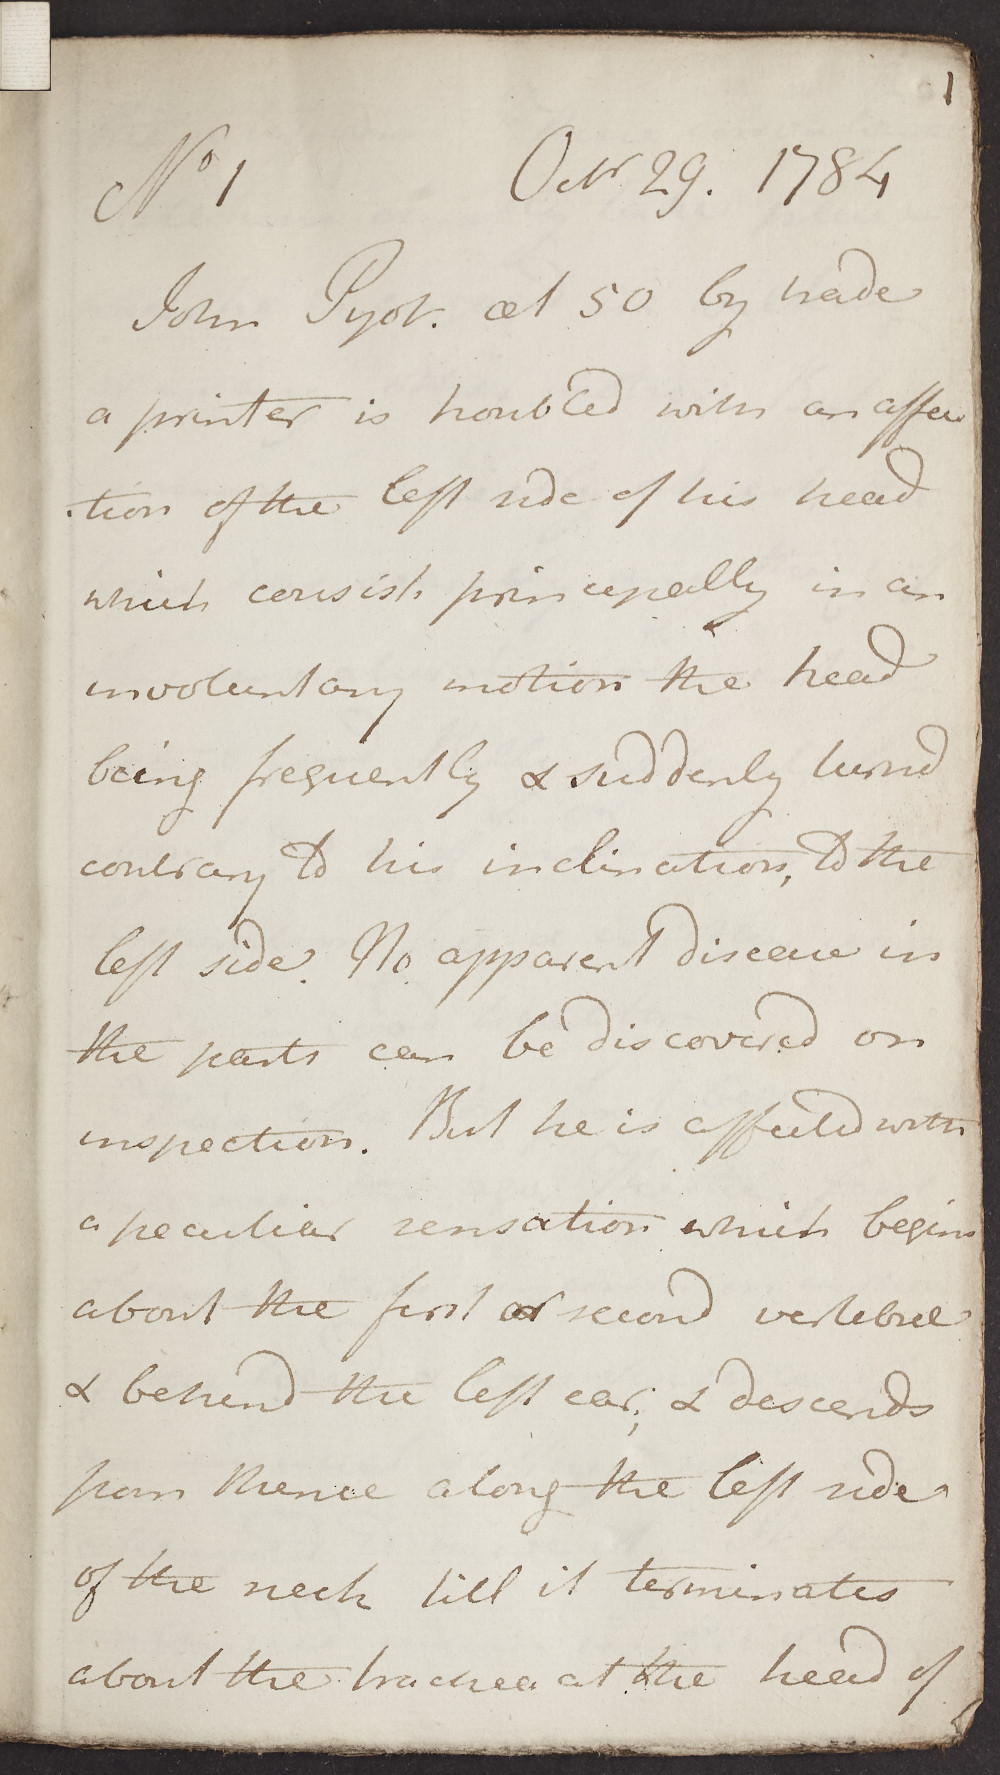 1
No 1 Octr 29. 1784
John Pyot. æt 50 by trade
a printer is troubled with an affec
-tion of the left side of his head
which consists principally in an
involuntary motion the head
being frequently & suddenly turnd
contrary to his inclination, to the
left side. No apparent disease in
the parts can be discovered on
inspection. But he is affected with
a peculiar sensation which begins
about the first or second vertebræ
& behind the left ear; & descends
from thence along the left side
of the neck till it terminates
about the trachea at the head of